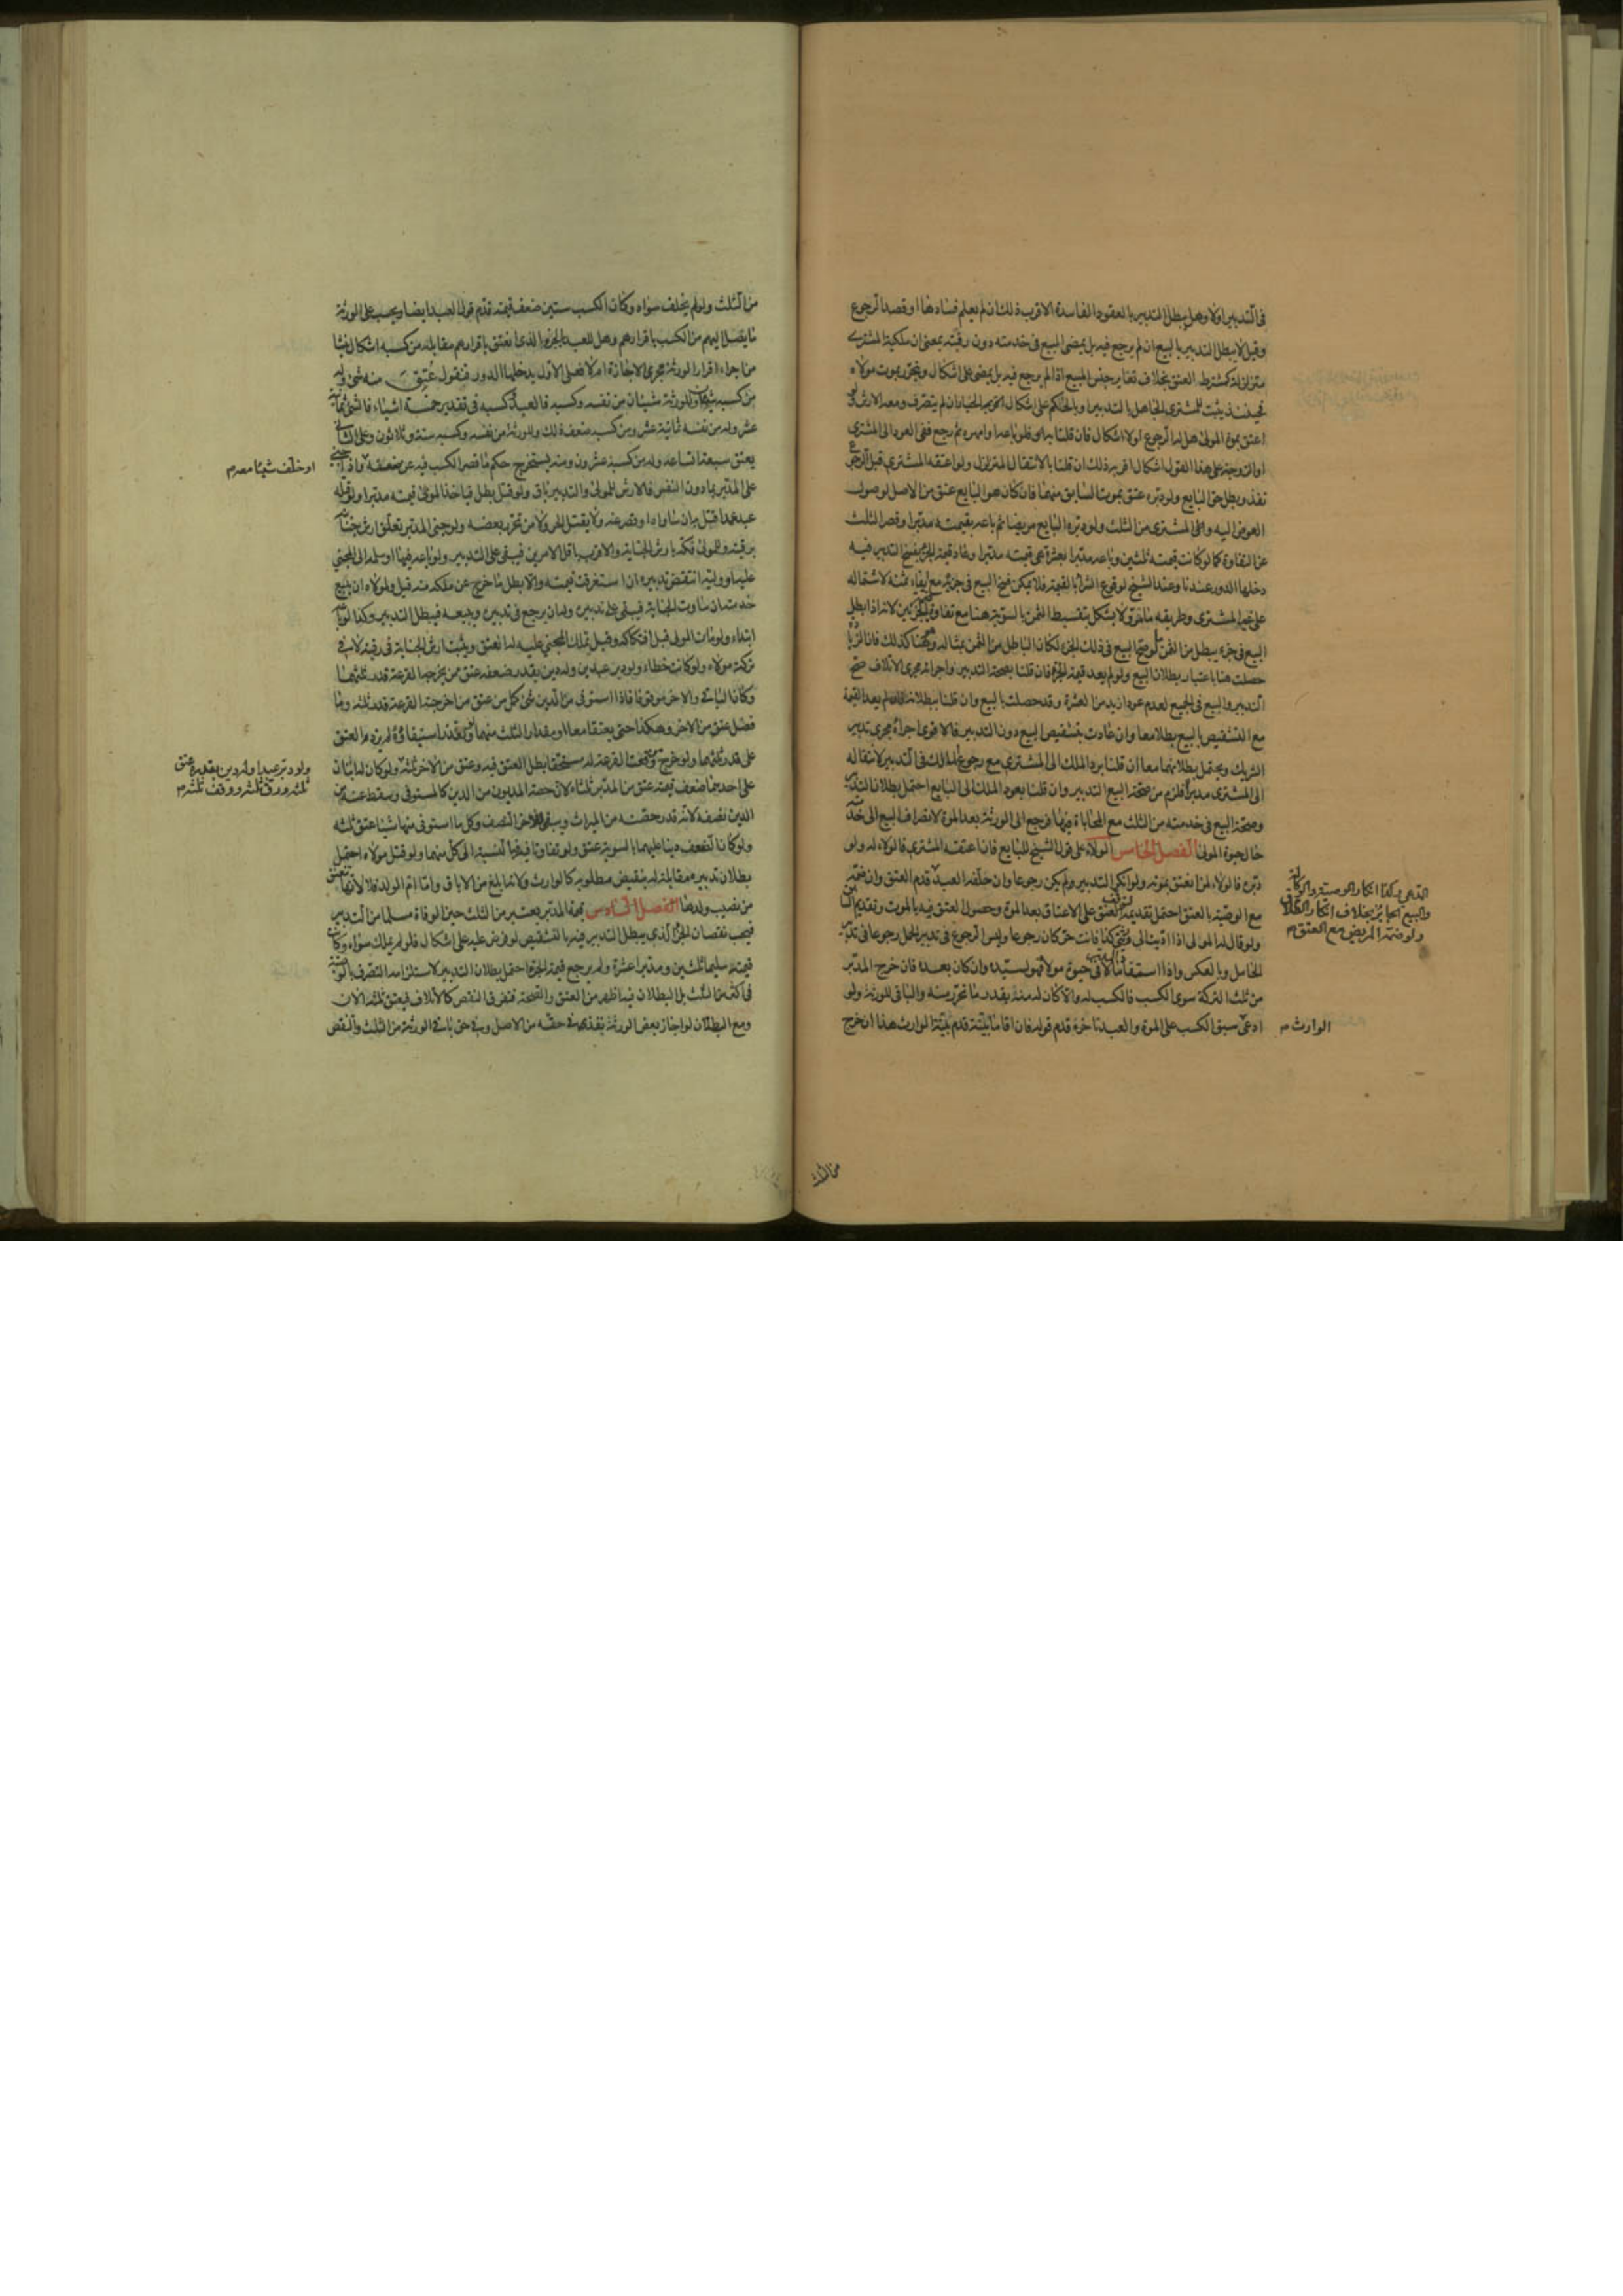 في التدبير اولا وهل يبطل التدبير بالعقود الفاسدة الاقرب ذلك ان لم يعلم فسادها او قصد الرجوع
وقيل لا يبطل التدبير بالبيع ان لم يرجع فيه بل يمضي البيع في خدمته دون رقبته بمعنى ان ملكية المشتري
متزلزلة كمشترط العتق بخلاف تغاير جنس المبيع اذا لم يرجع فيه بل يمضي على اشكال ويتحرر بموت مولاه
فحينئذ يثبت للمشتري الجاهل بالتدبير او بالحكم على اشكال الخيار
اعتق بموت المولى هل له الرجوع اولا اشكال فان قلنا به
او الزوجة على هذا القول اشكال اقربه ذلك ان قلنا بالانتقال المتزلزل ولو اعتقه المشتري قبل الرجوع
نفذ وبطل حق البايع ولو دبره عتق بموت السابق منهما فان كان هو البايع عتق من الاصل لوصول
العوض اليه والا المشتري من الثلث ولو دبره البايع مريضا ثم باعه بقيمته مدبرا وقصر الثلث
عن التفاوت كما لو كانت قيمته ثلثين وباعه مدبرا بعشرة هي قيمته مدبرا وعاد قيمة الجزء بفسخ التدبير فيه
دخلها الدور عندنا وعند الشيخ لوقوع الشرا بالقيمة فلا يمكن فسخ البيع في جزئه مع ايفاء ثمنه لاشتماله
على ضرر المشتري وطريقه ما مر ولا يشكل بتقسيط الثمن بالسوية هنا مع تفاوت الجزئين لانه اذا بطل
البيع في جزء يبطل من الثمن ما لو صح البيع في ذلك الجزء لكان الباطل من الثمن مقابله وهنا كذلك فان الزيادة
حصلت هنا باعتبار بطلان البيع ولو لم يعد قيمة الجزء فان قلنا بصحة التدبير واجرائه مجرى الاتلاف صح
التدبير والبيع في الجميع لعدم عود ازيد من العشرة وقد حصلت بالبيع وان قلنا ببطلانه فان لم يعد القيمة
مع التشقيص بالبيع بطلا معا وان عادت بتشقيص البيع دون التدبير فالاقوى اجراؤه مجرى تدبير
الشريك ويحتمل بطلانهما معا ان قلنا برد الملك الى المشتري مع رجوع المالك في التدبير لانتقاله
الى المشتري مدبرا فلزم من صحة البيع التدبير وان قلنا بعود الملك الى البايع احتمل بطلان التدبير
وصحة البيع في خدمته من الثلث مع المحاباة فيها فيرجع الى الورثة بعد الموت لانصراف البيع الى خدمته
حال حيوة المولى الفصل الخامس الولاء على قول الشيخ للبايع فان اعتقه المشتري فالولاء له ولو
دبره فالولاء لمن انعتق بموته ولو انكر التدبير ولم يكن رجوعا وان حلفه العبد قدم العتق وان ضمه
مع الوصية بالعتق احتمل تقديمه لتوقف العتق على الاعتاق بعد الموت وحصول العتق فيه بالموت وتقديم السابق
ولو قال له المولى اذا اديت الى وقتي كذا فانت حر كان رجوعا وليس الرجوع في تدبير الحمل رجوعا في تدبير
الحامل وبالعكس واذا استفاد مالا في حيوة مولاه فهو لسيده وان كان بعده فان خرج المدبر
من ثلث التركة سوى الكسب فالكسب له والا كان له منه بقدر ما تحرر منه والباقي للورثة ولو
ادعى سبق الكسب على الموت والعبد تاخره قدم قوله فان اقاما بينة قدم بينة الوارث هذا ان خرج
الذي وكذا انكار الوصية والوكالة
والبيع الجائز بخلاف انكار الطلاق
ولو ضمه المريض مع العتق م
الوارث م
من الثلث
من الثلث ولو لم يخلف سواه وكان الكسب ستين ضعف قيمته قدم قول العبد ايضا ويحسب على الورثة
ما يصل اليهم من الكسب باقرارهم وهل للعبد بالجزء الذي انعتق باقرارهم مقابله من كسبه اشكال ينشا
من اجراء اقرار الورثة مجرى الاجازة ام لا فعلى الاول يدخلها الدور فنقول عتق منه شئ وله
من كسبه شيئان وللورثة شيئان من نفسه وكسبه فالعبد وكسبه في تقدير خمسة اشياء فالشئ ثمانية
عشر وله من نفسه ثمانية عشر ومن كسبه ضعف ذلك وللورثة من نفسه وكسبه ستة وثلاثون وعلى الثاني
يعتق سبعة اتساعه وله من كسبه عشرون ومنه يستخرج حكم ما قصر الكسب فيه عن ضعفه واذا جنى
على المدبر بما دون النفس فالارش للمولى والتدبير باق ولو قتل بطل فياخذ المولى قيمته مدبرا ولو قتله
عبد عمدا قتل به ان ساواه او قصر عنه ولا يقتل الحر ولا من تحرر بعضه ولو جنى المدبر تعلق ارش جنايته
برقبته وللمولى فكه بارش الجناية والاقرب باقل الامرين فيبقى على التدبير ولو باعه فيها او سلمه الى المجني
عليه او وليه انتقض تدبيره ان استغرقت قيمته والا بطل ما خرج عن ملكه منه قيل ولمولاه ان يبيع
خدمته ان ساوت الجناية فيبقى على تدبيره وله ان يرجع في تدبيره ويبيعه فيبطل التدبير وكذا لو باعه
ابتداء ولو مات المولى قبل افتكاكه وقبل تملك المجني عليه له انعتق ويثبت ارش الجناية في رقبته لا في
تركة مولاه ولو كانت خطاء ولو دبر عبدين وله دين بقدر ضعفهما عتق من يخرجه القرعة قدر ثلثهما
وكان الباقي والاخر موقوفا فاذا استوفى من الدين شئ كمل من عتق من اخرجته القرعة قدر ثلثه وما
فضل عتق من الاخر وهكذا حتى يعتقا معا او مقدار الثلث منهما ولو تعذر استيفاؤه لم يزد العتق
على قدر ثلثهما ولو خرج من وقعت القرعة له مستحقا بطل العتق فيه وعتق من الاخر ثلثه ولو كان له ابنان
على احدهما ضعف قيمته عتق من المدبر ثلثاه لان حصة المديون من الدين كالمستوفى وسقط عنه من
الدين نصفه لانه قدر حصته من الميراث ويبقى للاخر النصف وكل ما استوفى منها شيئا عتق ثلثه
ولو كانا الضعف دينا عليهما بالسوية عتق ولو تفاوتا فيه النسبة الى كل منهما ولو قتل مولاه احتمل
بطلان تدبيره مقابلة له بنقيض مطلوبه كالوارث ولانه ابلغ من الاباق واما ام الولد فلا لانها تعتق
من نصيب ولدها الفصل السادس قيمة المدبر يعتبر من الثلث حين الوفاة مسلما من التدبير
فيحسب نقصان الجزء الذي يبطل التدبير فيه بالتشقيص لو فرض عليه على اشكال فلو لم يملك سواه وكانت
قيمته سليما ثلثين ومدبرا عشرة ولم يرجع قيمة الجزء احتمل بطلان التدبير لاستلزامه التصرف بالنسبة
في اكثر من الثلث بل البطلان فيه اظهر من العتق والصحة فنفرض النقص كالاتلاف فيعتق ثلثه الان
ومع البطلان لو اجاز بعض الورثة نفذ في حقه من الاصل وفي حق باقي الورثة من الثلث والنقص
او خلف شيئا معه م
ولو دبر عبدا وله دين بقدره عتق
ثلثه ورق ثلثه ووقف ثلثه م